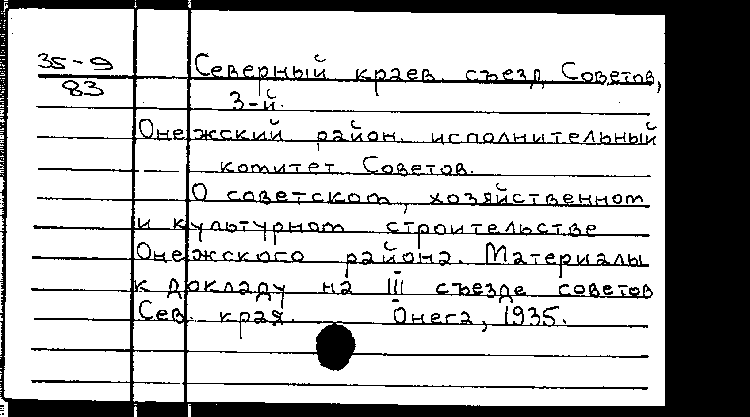 35-9
83
Северный краев. съезд Советов,
3-й.
Онежский район. исполнительный
комитет Советов.
О советском, хозяйственном
и культурном строительстве
Онежского района. Материалы
к докладу на III съезде советов
Сев. края. Онега, 1935.